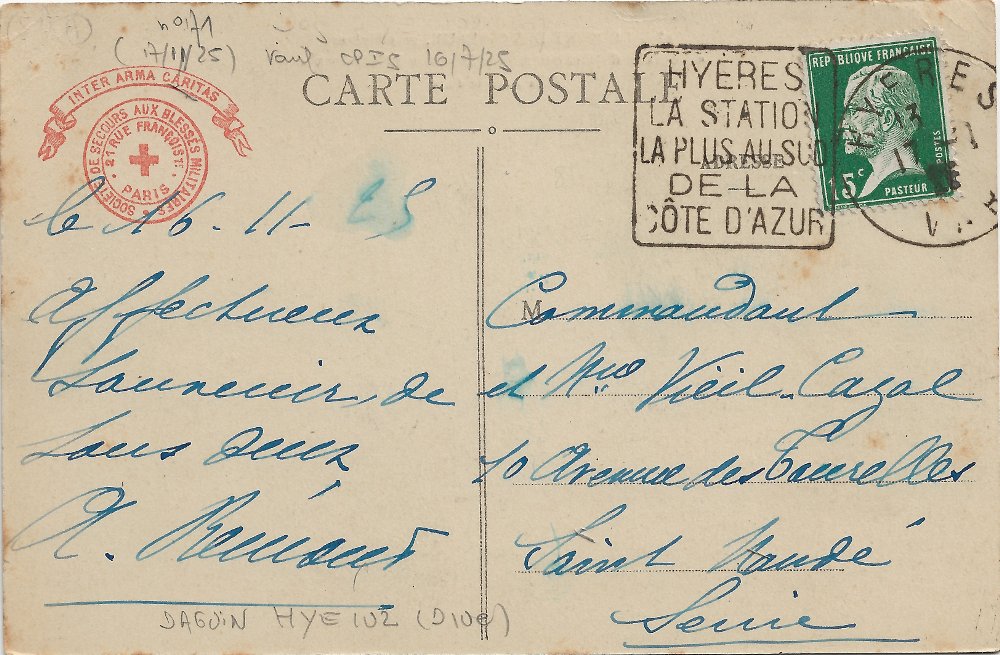 n°171
(17/11/25) 16/7/25
CARTE POSTALE
INTER ARMA CARITAS
SOCIÉTÉ DE SECOURS AUX BLESSÉS MILITAIRES
21 RUE FRANÇOIS 1er
PARIS
HYÈRES
LA STATION
LA PLUS AU SUD
DE LA
CÔTE D'AZUR
ADRESSE
REPUBLIQUE FRANÇAISE
POSTES
15c
PASTEUR
HYERES
13
17 -11
VAR
le 16-11-25
Affectueux
Souvenir de
tous deux
A. Rémond
M
Commandant
et Mme Vieil-Cazal
10 Avenue des Tourelles
Saint Mandé
Seine
DAGUIN HYE 102 (D10e)